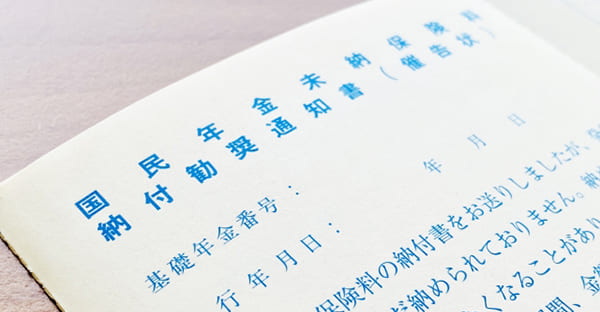 国民年金未納保険料
納付勧奨通知書(催告状)
年 月 日
基礎年金番号:
行年月日:
保険料の納付書をお送りしましたが、
が納められておりません。納
くなることがあり
間、金